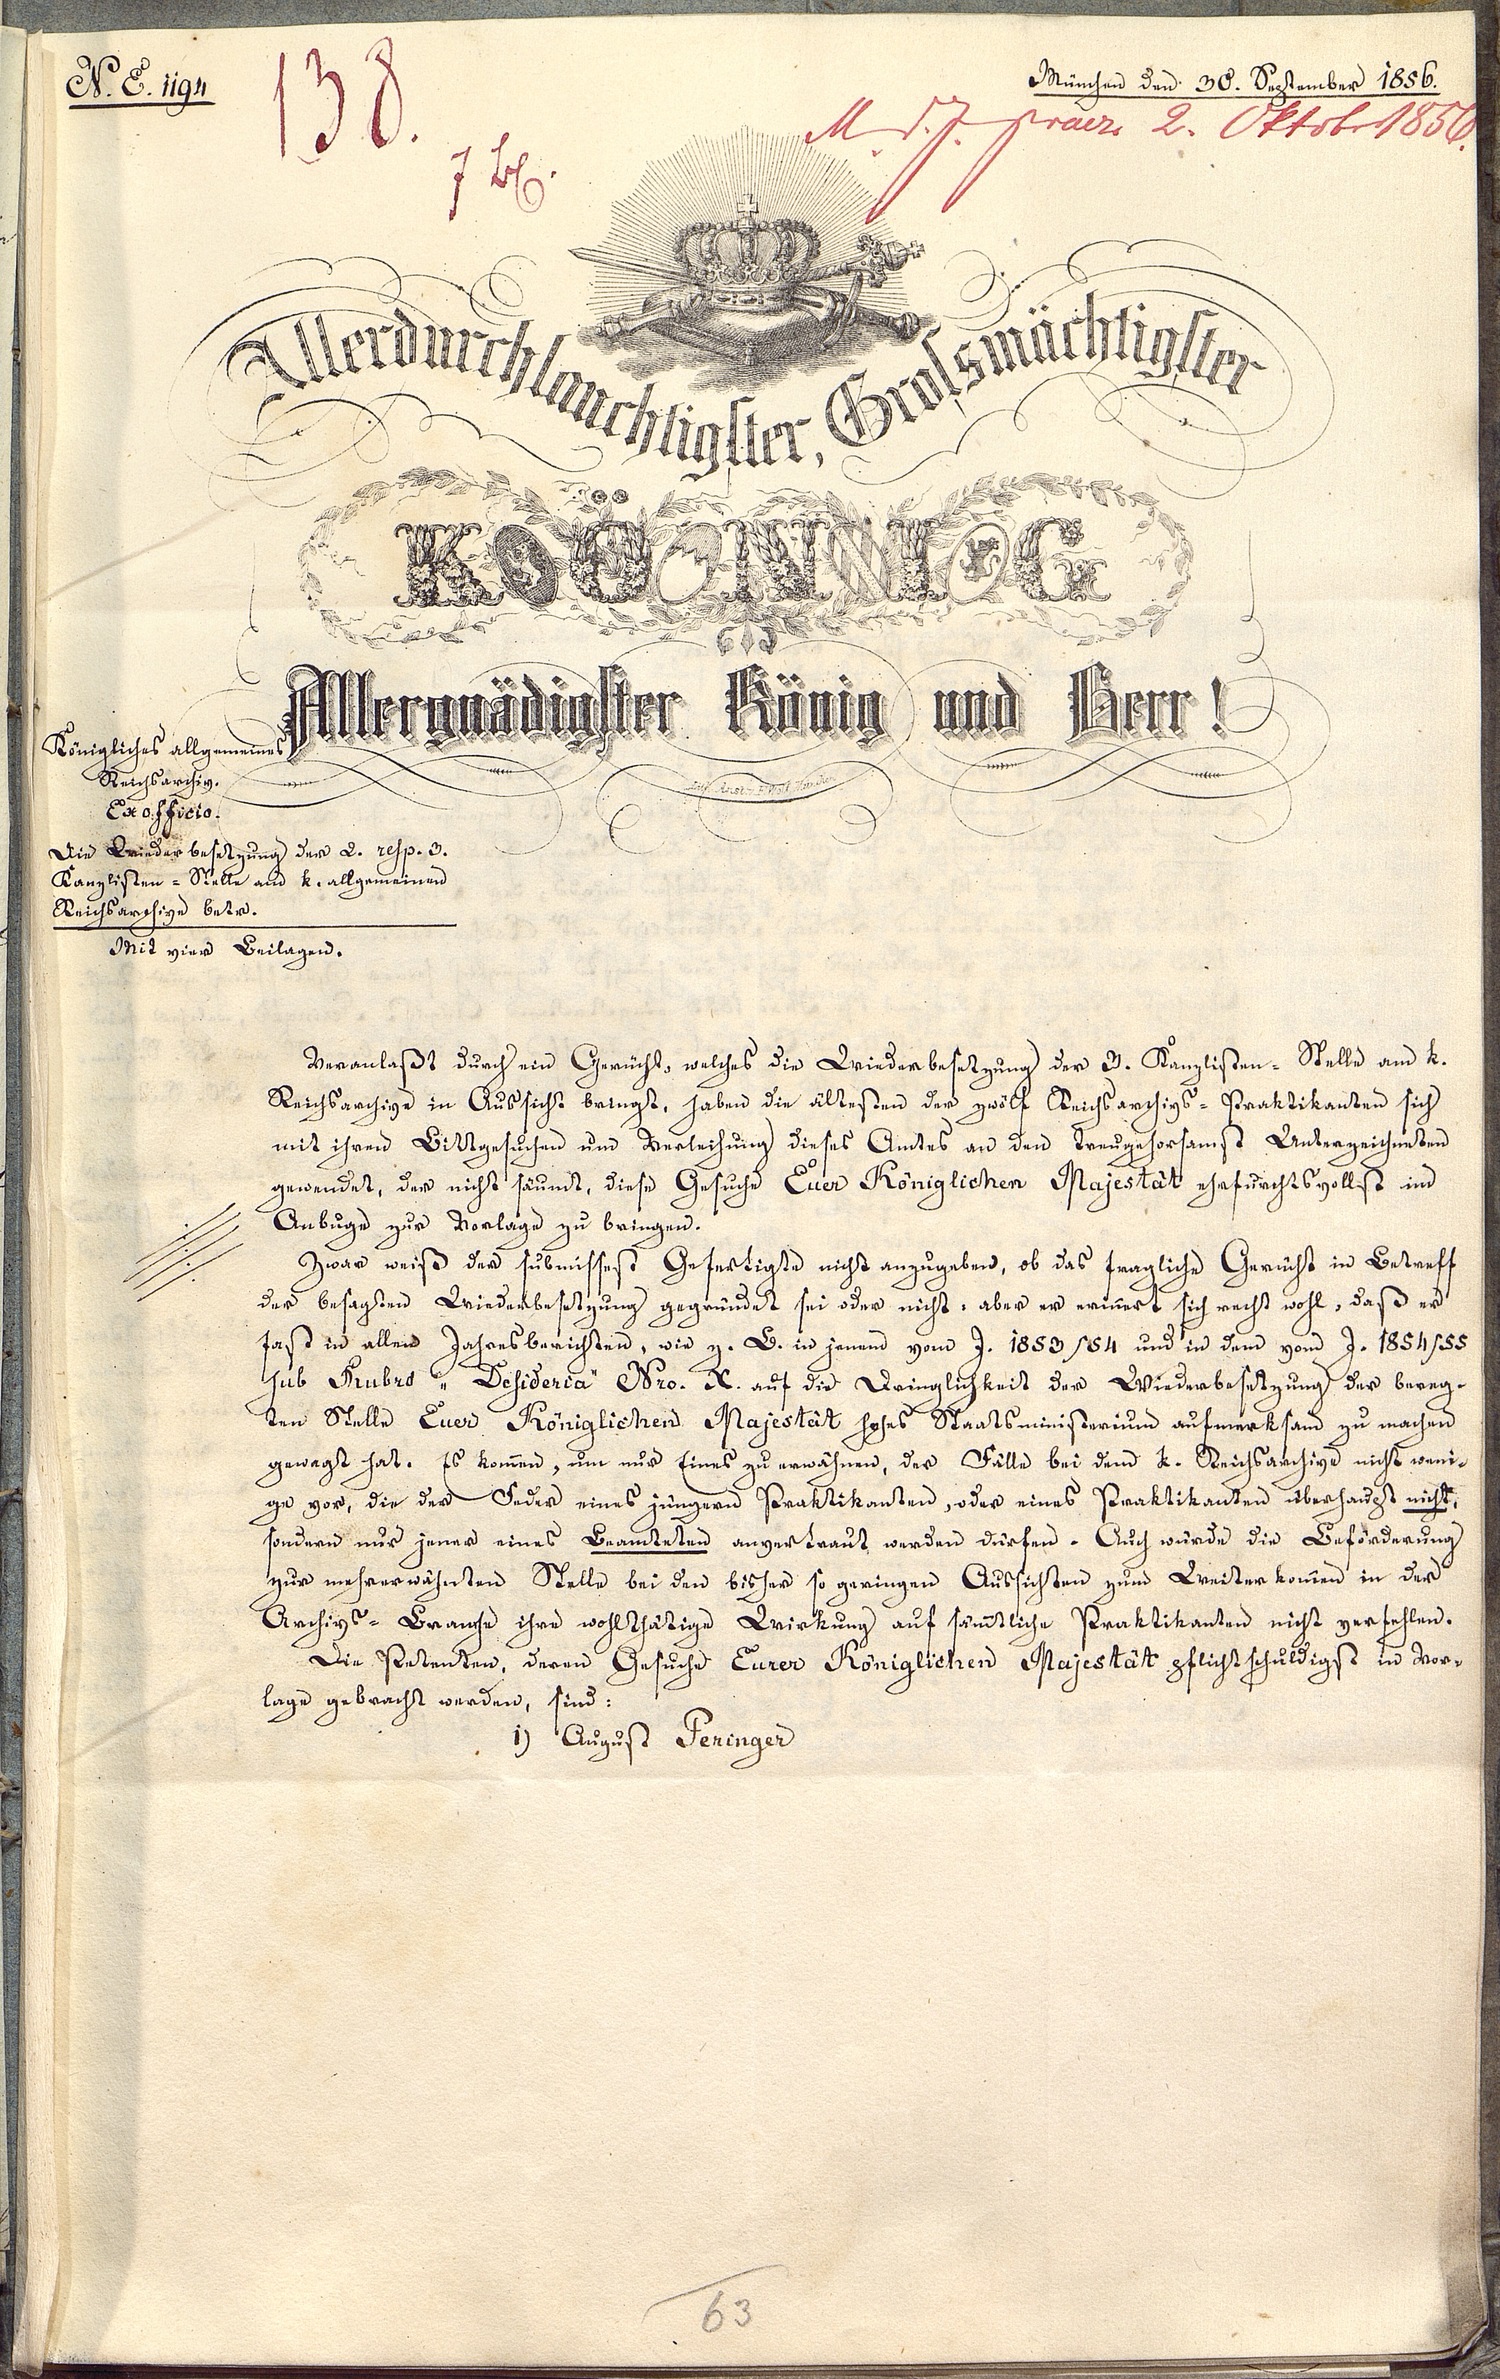 N. E. 1194
138.
München den 30. September 1856.
M. d. J. praes. 2. Oktob. 1856.
Allerdurchlauchtigster, Grossmächtigster
KOENIG
Allergnädigster König und Herr!
Königliches allgemeines
Reichsarchiv.
Ex officio.
Die Wiederbesetzung der 2. resp. 3.
Kanzlisten-Stelle am k. allgemeinen
Reichsarchive betr.
Mit vier Beilagen.
Veranlaßt durch ein Gerücht, welches die Wiederbesetzung der 3. Kanzlisten-Stelle am k.
Reichsarchive in Aussicht bringt, haben die ältesten der zwölf Reichsarchivs-Praktikanten sich
mit ihren Bittgesuchen um Verleihung dieses Amtes an den treugehorsamst Unterzeichneten
gewendet, der nicht säumt, diese Gesuche Euer Königlichen Majestät ehrfurchtsvollst im
Anbuge zur Vorlage zu bringen.
Zwar weiß der submissest Gefertigte nicht anzugeben, ob das fragliche Gerücht in Betreff
der besagten Wiederbesetzung gegründet sei oder nicht: aber er erinnert sich recht wohl, daß er
fast in allen Jahresberichten, wie z. B. in jenem vom J. 1853/54 und in dem vom J. 1854/55
sub Rubro "Desideria" Nro. X. auf die Dringlichkeit der Wiederbesetzung der bereg-
ten Stelle Euer Königlichen Majestät hohes Staatsministerium aufmerksam zu machen
gewagt hat. Es kommen, um nur Eines zu erwähnen, der Fälle bei dem k. Reichsarchive nicht weni-
ge vor, die der Feder eines jüngern Praktikanten, oder eines Praktikanten überhaupt nicht,
sondern nur jener eines Beamteten anvertraut werden dürfen. Auch würde die Beförderung
zur mehrerwähnten Stelle bei den bisher so geringen Aussichten zum Weiterkommen in der
Archivs-Branche ihre wohlthätige Wirkung auf sämmtliche Praktikanten nicht verfehlen.
Die Petenten, deren Gesuche Eurer Königlichen Majestät pflichtschuldigst in Vor-
lage gebracht werden, sind:
1) August Feringer
63